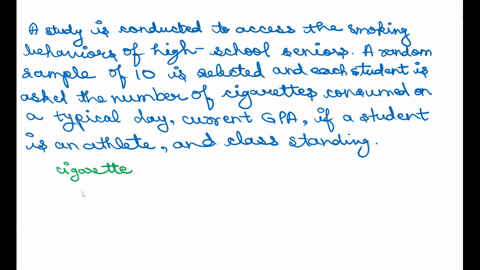 A study is conducted to access the smoking
behaviors of high-school seniors. A random
sample of 10 is selected and each student is
asked the number of cigarettes consumed on
a typical day, current GPA, if a student
is an athlete, and class standing.
cigarette